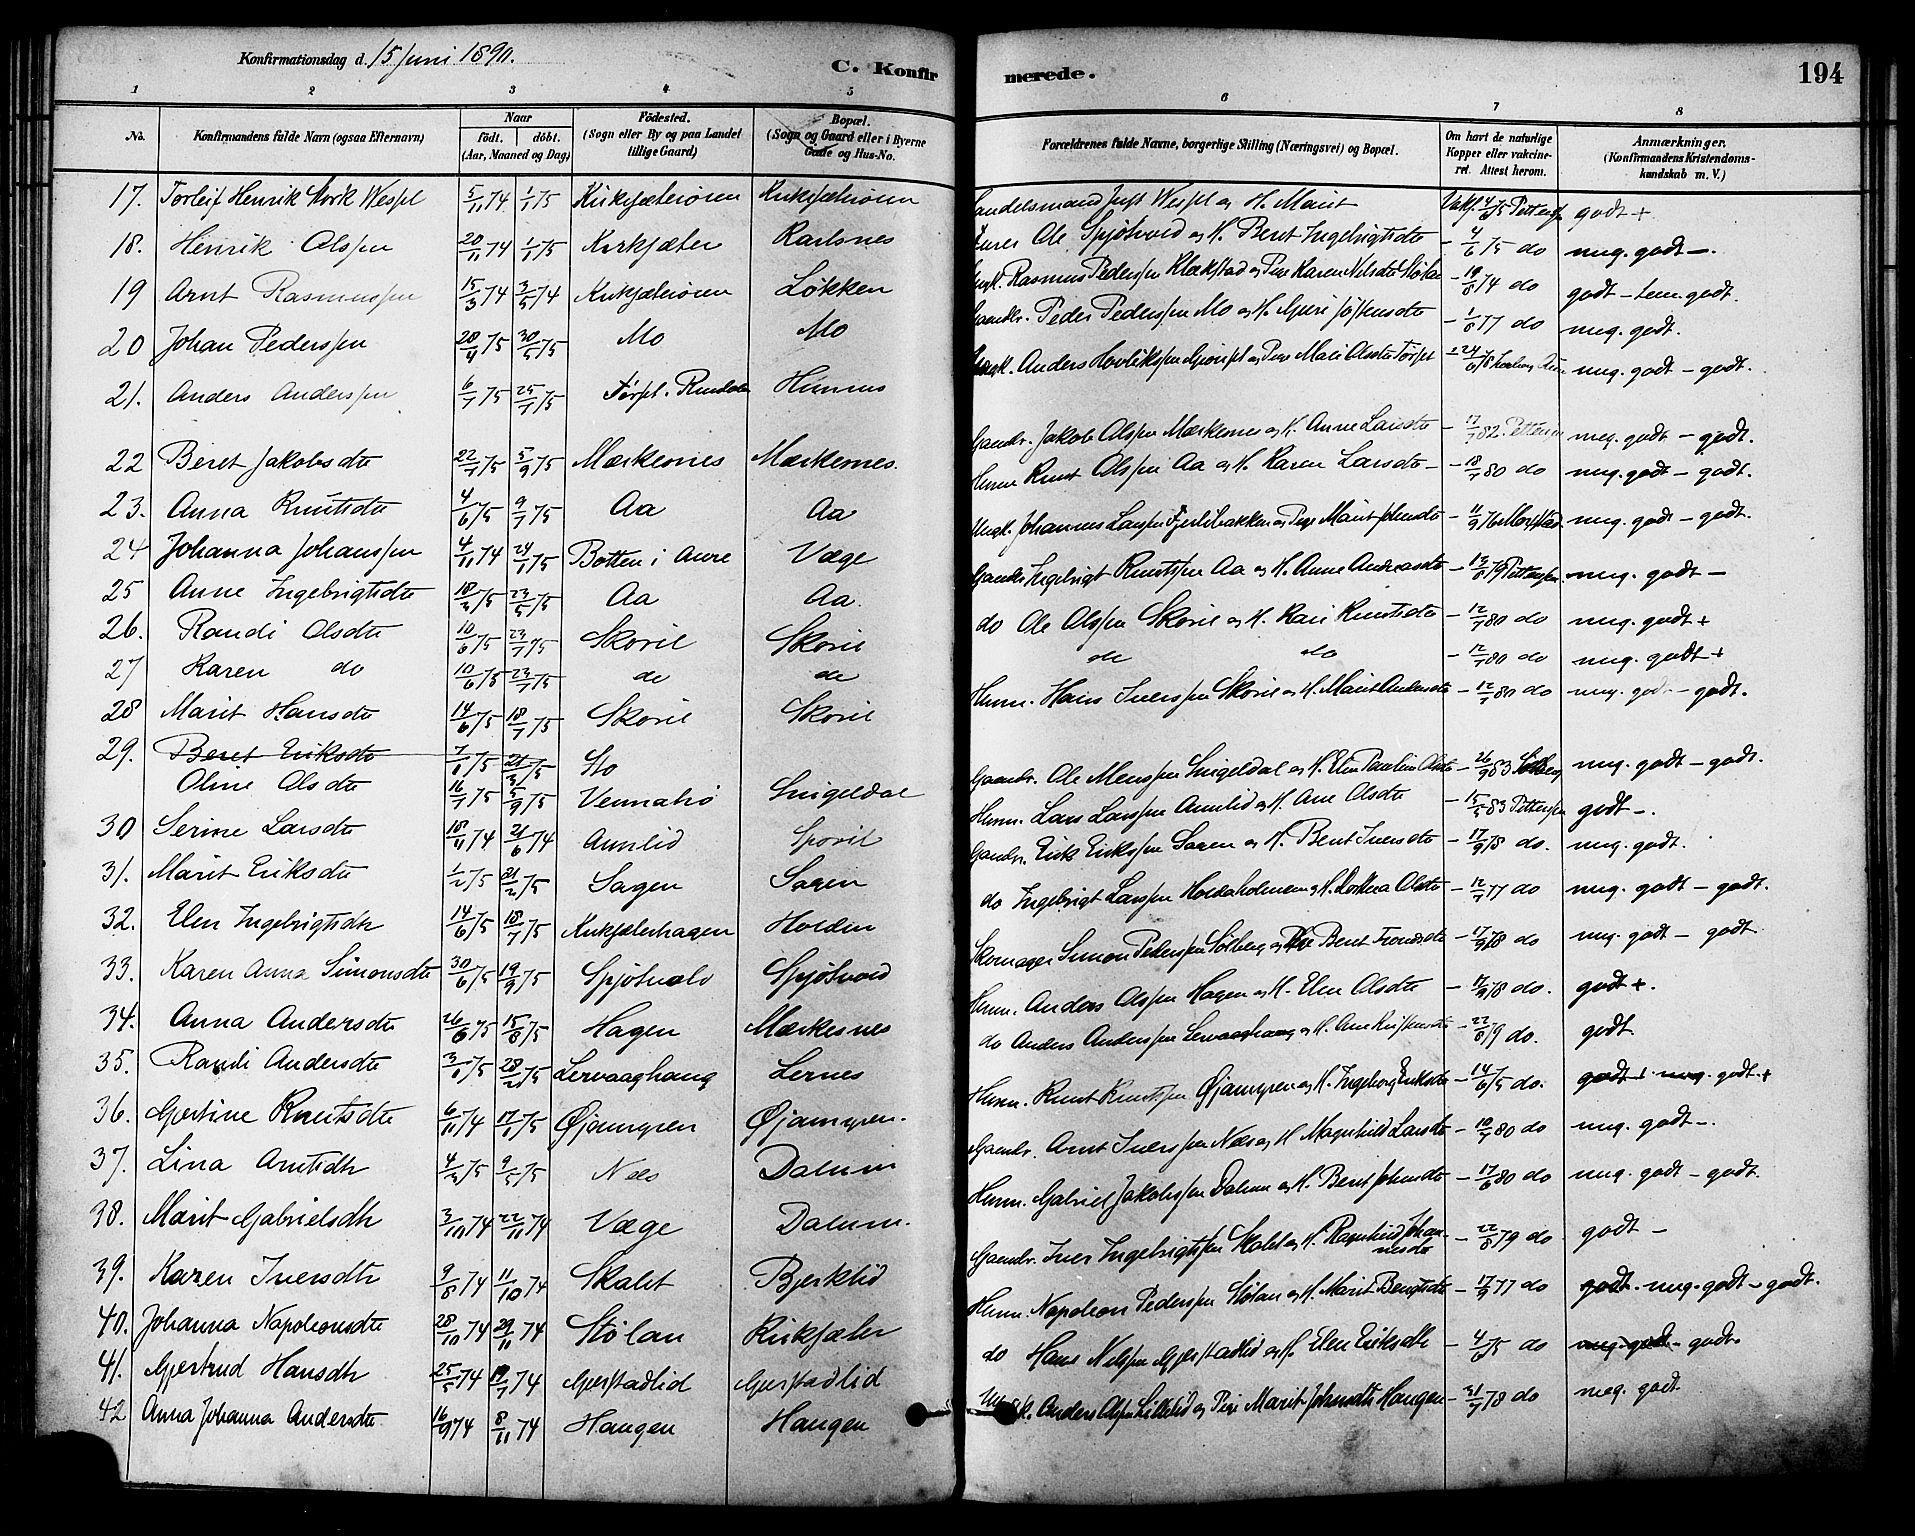 Konfirmationsdag d. 15 Juni 1890.
C. Konfirmerede.
194
1 2 3 4 5 6 7 8
No. Konfirmandens fulde Navn (ogsaa Efternavn) Naar født. døbt. (Aar, Maaned og Dag) Fødested. (Sogn eller By og paa Landet tillige Gaard) Bopæl. (Sogn og Gaard eller i Byerne Gade og Hus-No. Forældrenes fulde Navne, borgerlige Stilling (Næringsvei) og Bopæl. Om havt de naturlige Kopper eller vakcineret. Attest herom. Anmærkninger. (Konfirmandens Kristendomskundskab m. V.)
17. Torleif Henrik Stork Wessel 5/11 74 1/1 75 Kirksæterören Kirksæterören Handelsmand Just Wessel og H. Marit godt +
18. Henrik Olssen 20/11 74 1/1 75 Kirksæter Karlsnes Ole Spjötvold og H. Beret Ingebrigtsdtr - 4/6 75 do meg. godt -.
19 Arnt Rasmussen 15/3 74 3/5 74 Kirksæterören Løkken Rasmus Pederssen Klækstad og Pige Karen Nilsdtr Stølan - 19/8 74 do godt - tem. godt.
20 Johan Pederssen 28/4 75 30/5 75 Mo Mo Gaardbr. Peder Pederssen Mo og H. - 1/8 77 do meg. godt.
21. Anders Anderssen 6/7 75 25/7 75 Rindalen Hunnes Ungk. Anders og Pige Mali Olsdtr meg. godt - godt.
22 Beret Jakobsdtr 22/7 75 5/9 75 Mærkesnes Mærkesnes. Gaardbr. Jakob Olssen Mærkesnes og H. Anne Larsdtr - 17/7 82. Petterssen meg. godt - godt.
23. Anna Knutsdtr 4/6 75 9/7 75 Aa Aa Husm. Knut Olssen Aa og H. Karen Larsdtr - 18/7 80 do meg. godt - godt.
24 Johanna Johanssen 4/11 74 24/1 75 Botten i Aure Væge Ungk. Johannes Larssen og Pige Marit Johnsdtr - 11/9 76 meg. godt - godt.
25 Anne Ingebrigtsdtr 18/3 75 23/5 75 Aa Aa. Gaardbr. Ingebrigt Knutssen Aa og H. Anne Andreasdtr Petterssen meg. godt -
26. Randi Olsdtr 10/6 75 23/7 75 Skovil Skovil do Ole Olssen Skovil og H. Kari Knutsdtr - 12/7 80 do meg. godt +
27 Karen do 10/6 75 23/7 75 do do do do - 12/7 80 do meg. godt +
28 Marit Hansdtr 14/6 75 18/7 75 Skovil Skovil Husm. Hans Iverssen Skovil og H. Marit Andersdtr - 12/7 80 do meg. godt - godt.
29. Beret Eriksdtr Sto
Oline Olsdtr 16/7 75 5/9 75 Vennabö Snigeldal Gaardbr. Ole Monssen Snigeldal og H. Elen Pauline Olsdtr - 26/9 83 Solberg meg. godt - godt.
30 Serine Larsdtr 18/4 74 21/6 74 Aunlid Husm. Lars Larssen Aunlid og H. Ane Olsdtr - 15/5 83 Petterssen godt -.
31. Marit Eriksdtr 1/2 75 21/2 75 Sagen Sagen Gaardbr. Erik Erikssen Sagen og H. Beret Iversdtr - 17/9 78 do. meg. godt.
32. Elen Ingebrigtsdtr 14/6 75 18/7 75 Kirksæterhagen Holden do Ingebrigt Larssen Holdaholmen og H. Olsdtr - 12/7 77 do meg. godt - godt.
33. Karen Anna Simonsdtr 30/6 75 19/9 75 Spjötvold Spjötvold Skomager Simon Pederssen Solberg og Pige Beret Trondsdtr - 17/9 78 do meg. godt - godt.
34. Anna Andersdtr 26/6 75 15/8 75 Hagen Mærkesnes Husm. Anders Olssen Hagen og H. Elen Olsdtr - 17/9 78 do. godt +.
35. Randi Andersdtr 3/1 75 28/2 75 Lervaaghaug Lernes do Anders Anderssen Lervaaghaug og H. Ane Kristensdtr - 22/8 79 do. godt
36. Gjertine Knutsdtr 6/11 74 17/1 75 Øjamyren Øjamyren. Husm. Knut Knutssen Øjamyren og H. Ingeborg Eriksdtr - 14/6 75 do. godt + meg. godt +
37. Lina Arntsdtr 4/3 75 9/5 75 Næs Dalum Gaardbr. Arnt Iverssen Næs og H. Magnhild Larsdtr - 10/7 80 do meg. godt -.
38. Marit Gabrielsdtr 3/10 74 22/11 74 Væge Dalum. Husm. Gabriel Jakobssen Dalum og H. Beret Johnsdtr - 17/6 80 do meg. godt - godt.
39. Karen Iversdtr 9/8 74 11/10 74 Skalet Bjerklid Gaardbr. Iver Ingebrigtssen Skalet og H. Ragnhild Johannesdtr - 22/8 79 do godt -
40. Johanna Napoleonsdtr 28/10 74 29/11 74 Stølan Kirksæter Husm. Napoleon Pederssen Stølan og H. Marit Bengtsdtr - 17/9 77 do godt. meg. godt - godt.
41. Gjertrud Hansdtr 25/5 74 19/7 74 Gjerstadlid Gjerstadlid do Hans Nilssen Gjerstadlid og H. Elen Eriksdtr - 4/6 75 do meg. godt - godt.
42 Anna Johanna Andersdtr. 16/9 74 8/11 74 Haugen Haugen Ungk. Anders Olssen Lillelid og Pige Marit Johnsdtr Haugen - 31/7 78 do meg. godt